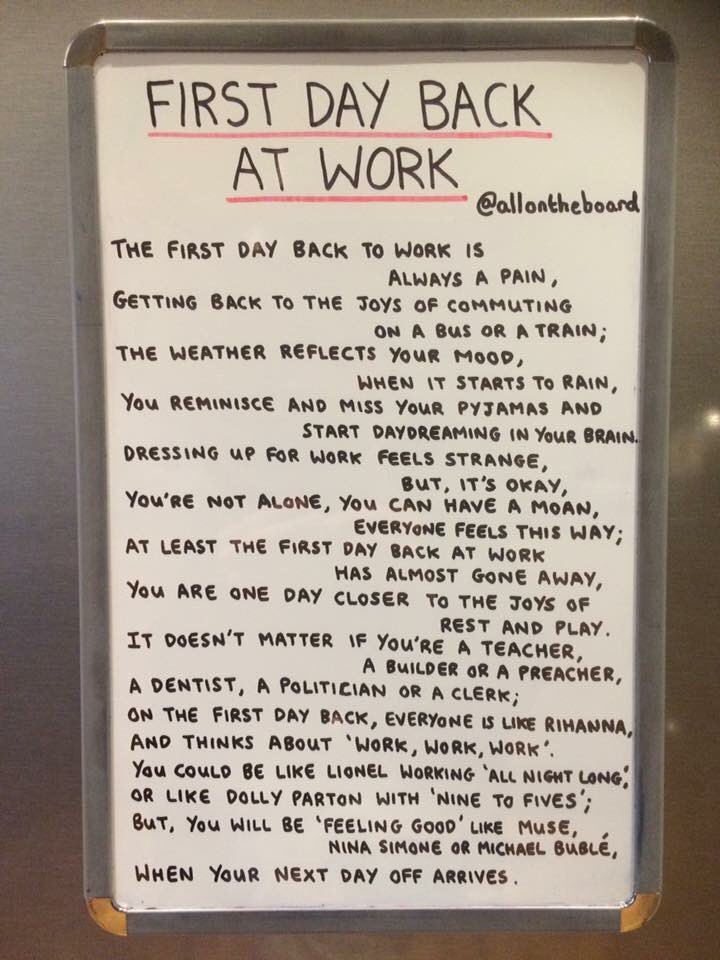 FIRST DAY BACK
AT WORK
@allontheboard
THE FIRST DAY BACK TO WORK IS
ALWAYS A PAIN,
GETTING BACK TO THE JOYS OF COMMUTING
ON A BUS OR A TRAIN;
THE WEATHER REFLECTS YOUR MOOD,
WHEN IT STARTS TO RAIN,
YOU REMINISCE AND MISS YOUR PYJAMAS AND
START DAYDREAMING IN YOUR BRAIN.
DRESSING UP FOR WORK FEELS STRANGE,
BUT, IT'S OKAY,
YOU'RE NOT ALONE, YOU CAN HAVE A MOAN,
EVERYONE FEELS THIS WAY;
AT LEAST THE FIRST DAY BACK AT WORK
HAS ALMOST GONE AWAY,
YOU ARE ONE DAY CLOSER TO THE JOYS OF
REST AND PLAY.
IT DOESN'T MATTER IF YOU'RE A TEACHER,
A BUILDER OR A PREACHER,
A DENTIST, A POLITICIAN OR A CLERK;
ON THE FIRST DAY BACK, EVERYONE IS LIKE RIHANNA,
AND THINKS ABOUT 'WORK, WORK, WORK'.
YOU COULD BE LIKE LIONEL WORKING 'ALL NIGHT LONG',
OR LIKE DOLLY PARTON WITH 'NINE TO FIVES';
BUT, YOU WILL BE 'FEELING GOOD' LIKE MUSE,
NINA SIMONE OR MICHAEL BUBLÉ,
WHEN YOUR NEXT DAY OFF ARRIVES.